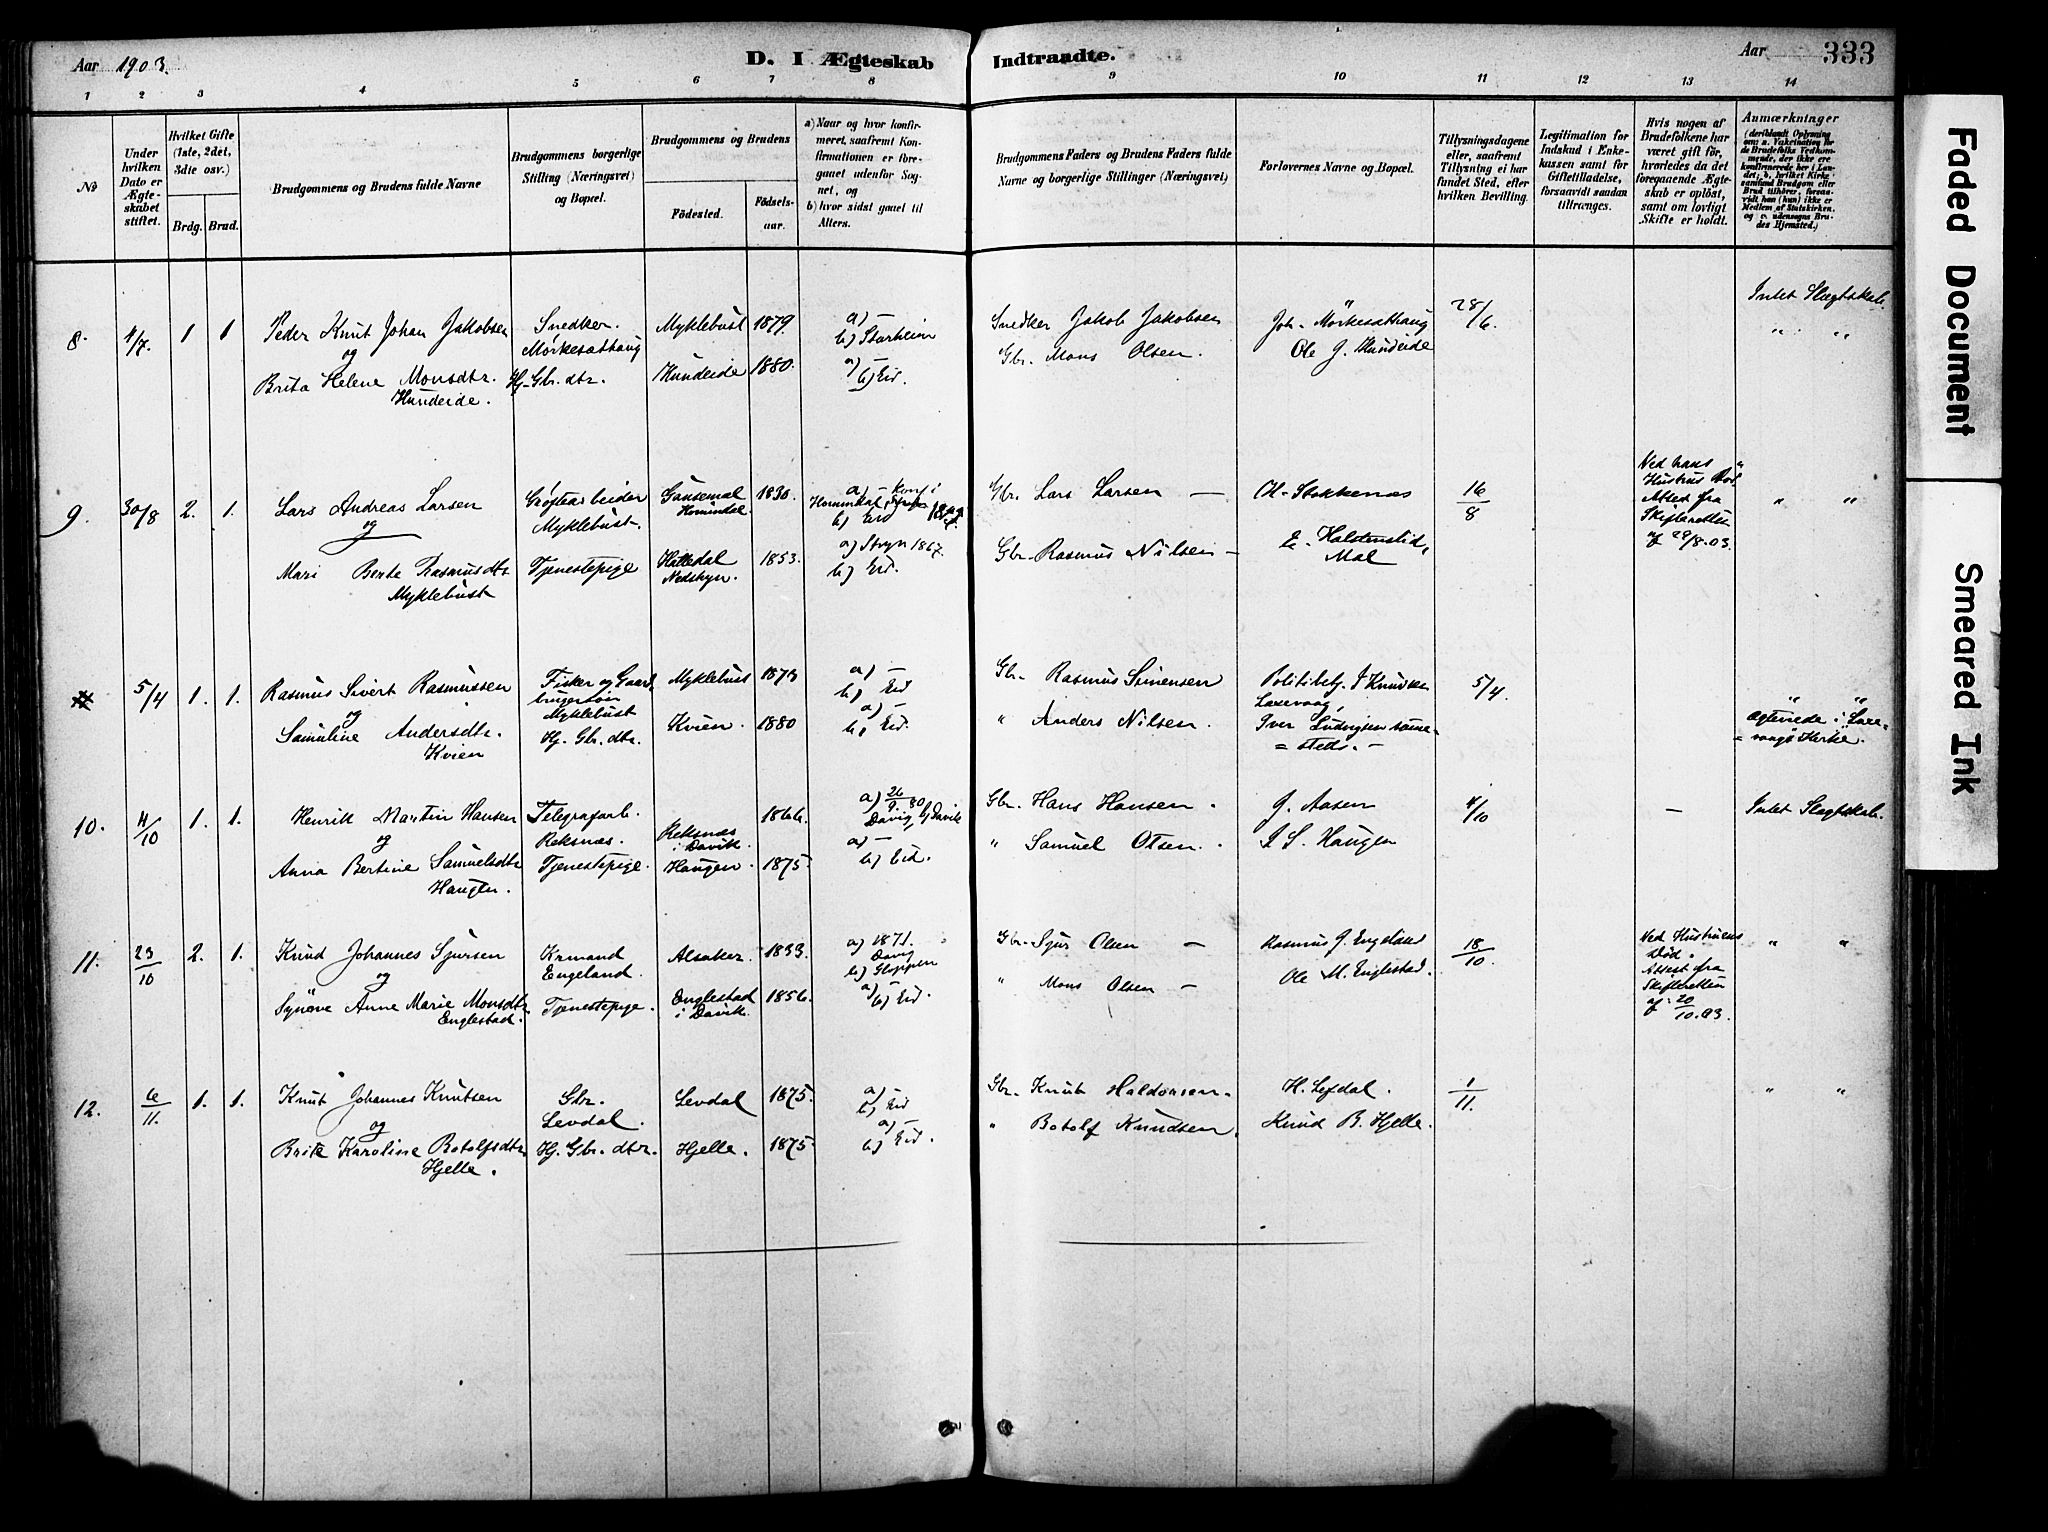 Aar 1903.
D. I Ægteskab Indtraadte.
Aar 333
1 2 3 4 5 6 7 8 9 10 11 12 13 14
No
Under hvilken Dato er Ægteskabet stiftet.
Hvilket Gifte (1ste, 2det, 3die osv.)
Brdg. Brud.
Brudgommens og Brudens fulde Navne
Brudgommens borgerlige Stilling (Næringsvei) og Bopæl.
Brudgommens og Brudens
Födested. Födselsaar.
a) Naar og hvor konfirmeret, saafremt Konfirmationen er foregaaet udenfor Sognet, og
b) hvor sidst gaaet til Alters.
Brudgommens Faders og Brudens Faders fulde Navne og borgerlige Stillinger (Næringsvei)
Forlovernes Navne og Bopæl.
Tillysningsdagene eller, saafremt Tillysning ei har fundet Sted, efter hvilken Bevilling.
Legitimation for Indskud i Enkekassen samt for Giftetilladelse, forsaavidt saadan tiltrænges.
Hvis nogen af Brudefolkene har været gift för, hvorledes da det foregaaende Ægteskab er oplöst, samt om lovligt Skifte er holdt.
Anmærkninger
(deriblandt Oplysning om: a. Vakcination for de Brudefolks Vedkommende, der ikke ere konfirmerede her i Landet; b. hvilket Kirkesamfund Brudgom eller Brud tilhörer, forsaavidt han (hun) ikke er Medlem af Statskirken, og c. udensogns Brudes Hjemsted.)
8. 4/7. 1 1 Peder Knut Johan Jakobsen Snedker. Myklebust 1879 a) — Snedker Jakob Jakobsen Joh. Mørkesathaug 28/6. Intet Slagtskab
og Mørkesathaug b) Starheim " "
Brita Helene Monsdtr. Hj. Gbr. dtr. Hundeide 1880. a) — Gbr. Mons Olsen. Ole J. Hundeide
Hundeide. b) Eid.
9. 30/8 2. 1. Lars Andreas Larsen Grøftearbeider 1830. a) — Konf i Gbr. Lars Larsen — Ol. Stokkenæs 16/8 Ved hans Hustrus Død " "
og Myklebust. Hornindal b) Eid Attest fra Skifteretten af 29/8.03.
Mari Berte Rasmusdtr Tjenestepige 1853. a) Stryn 1867. Gbr. Rasmus Nilsen —
Myklebust Nedstryn. b) Eid. Mal
5/4 1. 1. Rasmus Sivert Rasmussen Fisker og Gaard- Myklebust 1873 a) — Gbr. Rasmus Simensen Politibetj. I Knudsen 5/4. " "
og brugersøn b) Eid Laxevaag,
Samuline Andersdtr. Myklebust Kvien. 1880 a) — " Anders Nilsen. Iver Ludvigsen samme- ægteviede i Laxe-
Kvien Hj. Gbr. dtr. b) Eid. = steds. — = vaags Kirke.
10. 4/10 1. 1. Henrik Martin Hansen Telegrafarb. Reksnæs 1866. a) 26/9.80 Gbr. Hans Hansen. J. Aasen 4/10 — Intet Slagtskab.
og Reksnæs. i Davik. Davig, b) Davik
Anna Bertine Samuelsdtr Tjenestepige. Haugen. 1875. a) — " Samuel Olsen. I S. Haugen
Haugen. b) Eid.
11. 23/10 2. 1. Knud Johannes Sjursen Krmand Alsaker. 1833. a) 1871. Gbr. Sjur Olsen — Rasmus J. Engeland 18/10. Ved Hustruens Død. " "
og Engeland. Davig b) Gloppen Attest fra Skifteretten
Synøve Anne Marie Monsdtr. Tjenestepige. Englestad 1856. a) — " Mons Olsen — Ole M. Englestad. af 20/10.03.
Englestad. i Davik. b) Eid.
12. 6/11. 1. 1. Knut Johannes Knutsen Gbr. Levdal 1875. a) — Gbr. Knut Haldorsen. H. Lefdal. 1/11. " "
og Levdal. b) Eid
Brite Karoline Botolfsdtr Hj. Gbr. dtr. Hjelle. 1875. a) — " Botolf Knudsen. Knud B. Hjelle.
Hjelle. b) Eid.
Faded Document
Smeared Ink